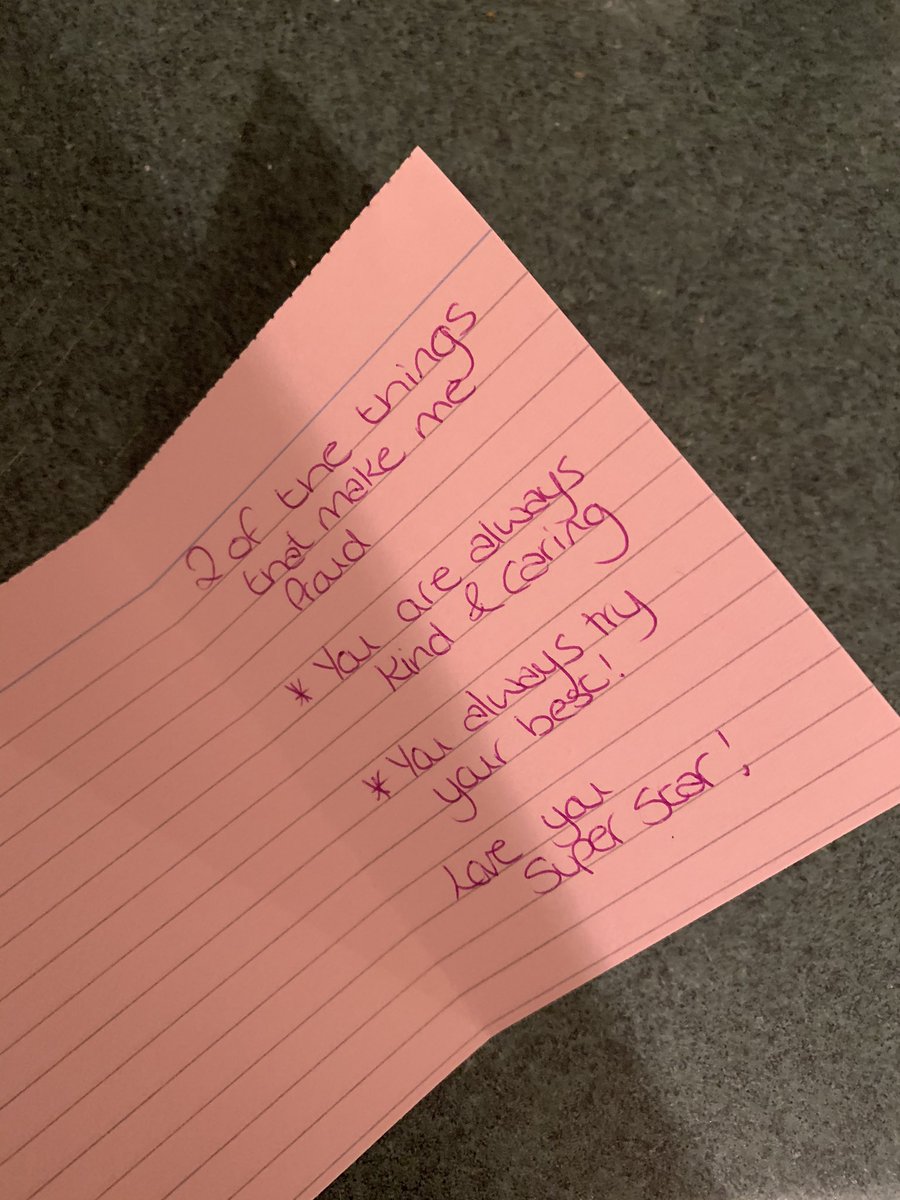 2 of the things
that make me
Proud
* You are always
kind & caring
* You always try
your best!
Love you
Super Star!